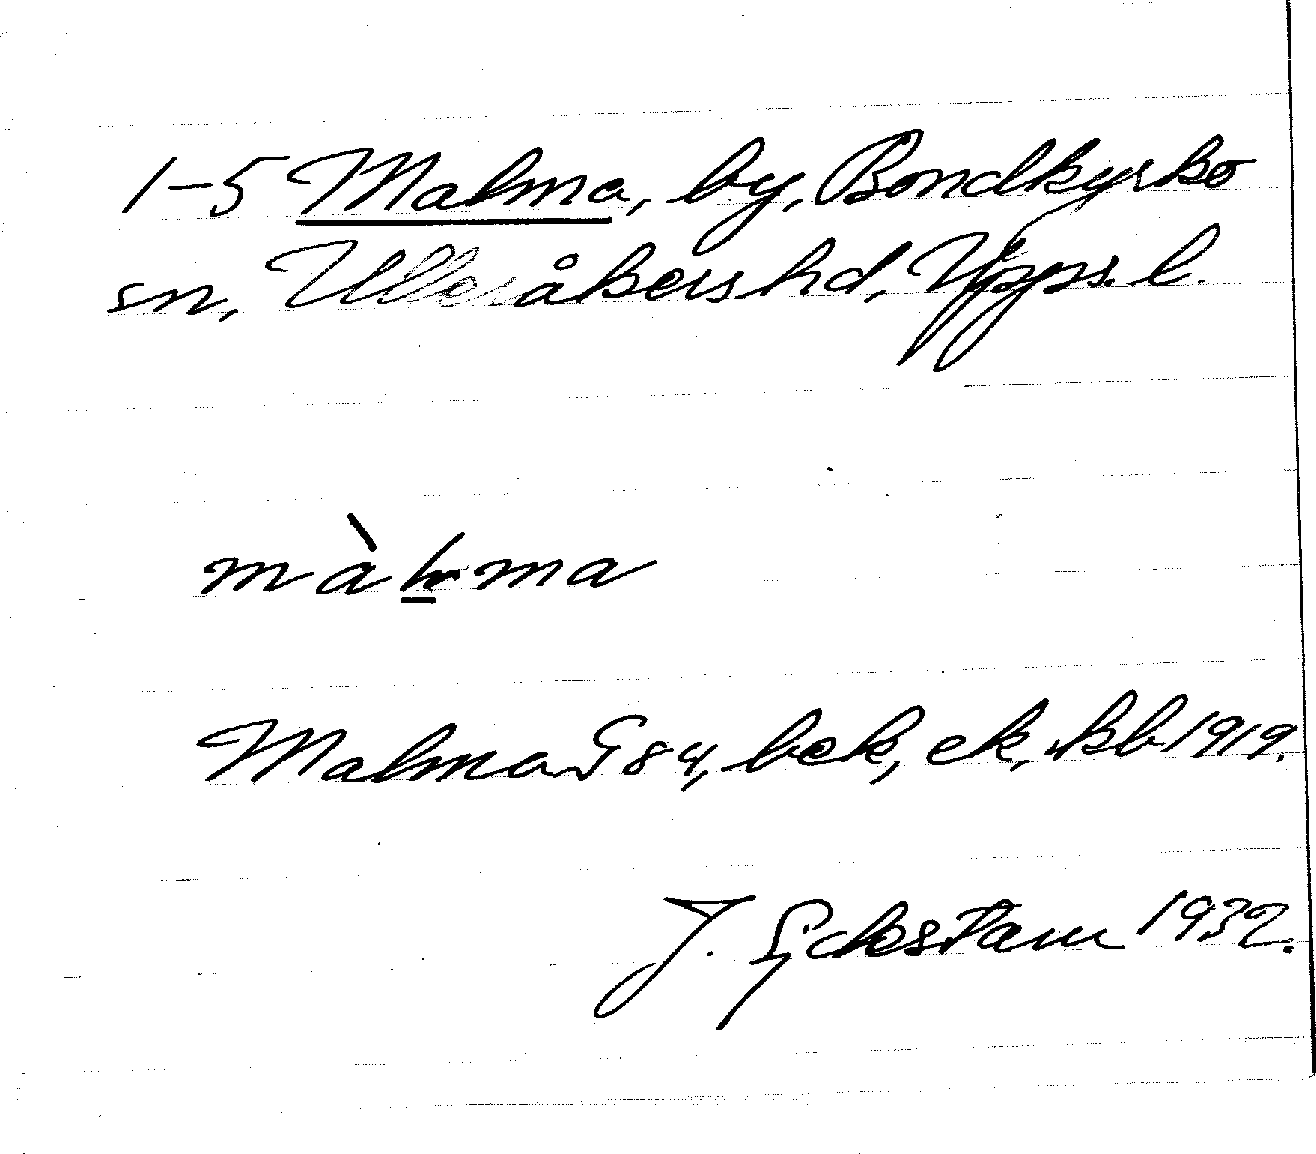 1-5 Malma, by, Bondkyrko
sn, Ulleråkers hd, Upps. l.
Malma G84, bek, ek, kb 1919.
J. 1932.